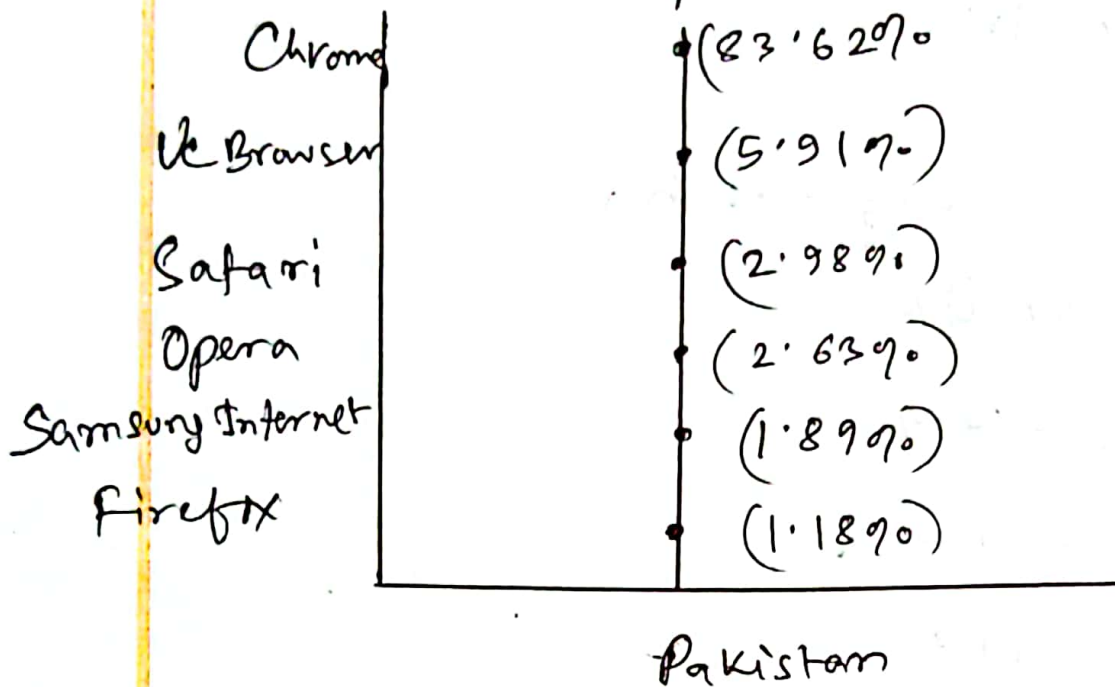 Chrome (83.62%
Uc Browser (5.91%)
Safari (2.98%)
Opera (2.63%)
Samsung Internet (1.89%)
Firefox (1.18%)
Pakistan